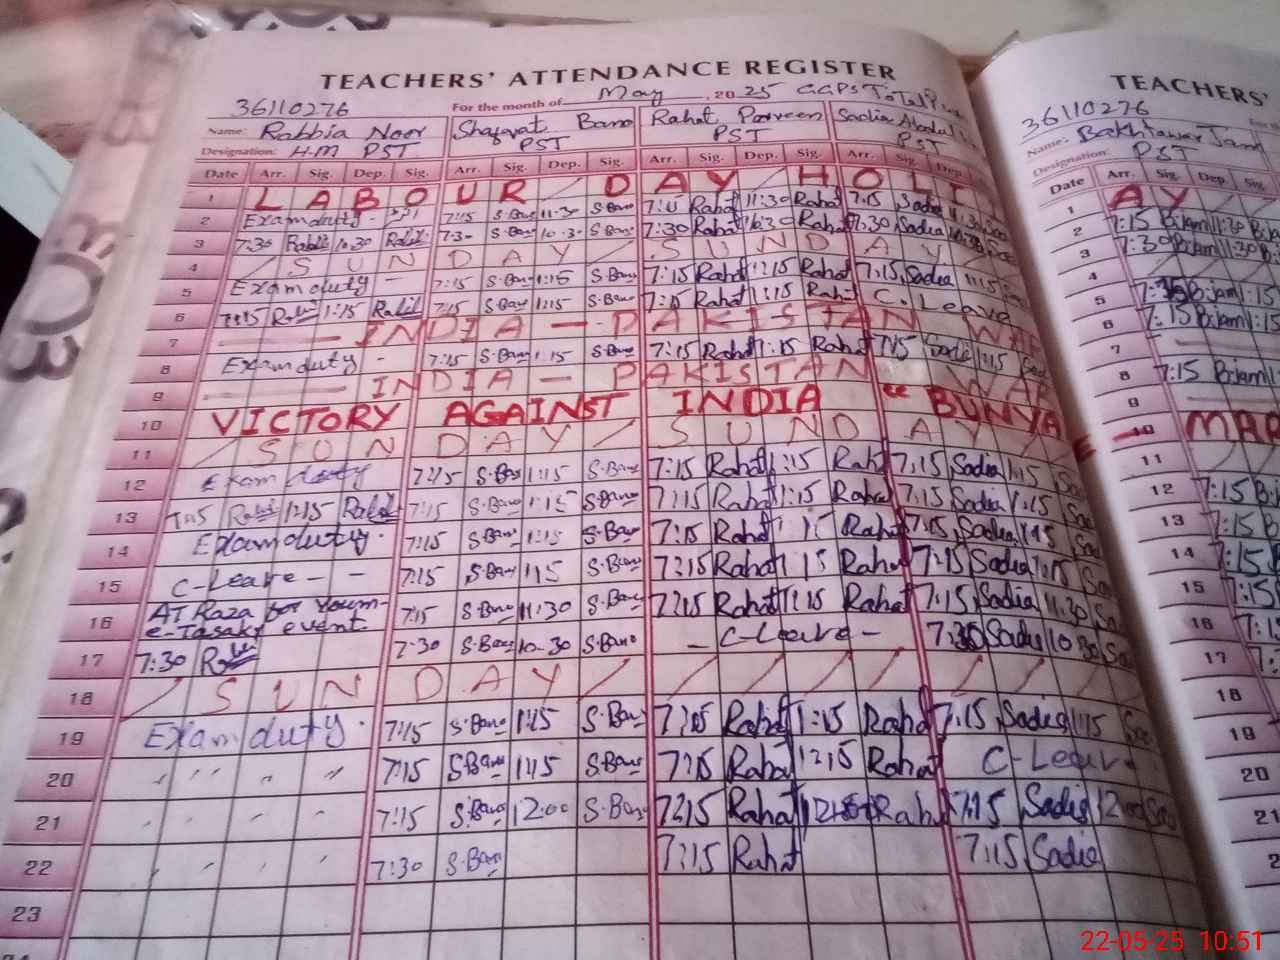 TEACHERS' ATTENDANCE REGISTER
36110276 For the month of May, 2025 GGPS
Name: Rabbia Noor Shafayat Bano Rahat Parveen Sadia Abdul
Designation: H.M PST PST PST PST
Date Arr. Sig. Dep. Sig. Arr. Sig. Dep. Sig. Arr. Sig. Dep. Sig. Arr. Sig. Dep.
1 L A B O U R / D A Y / H O L I
2 Exam duty - 7:15 S.Bano 11:30 S.Bano 7:15 Rahat 11:30 Rahat 7:15 Sadia 11:30
3 7:30 Rabi 10:30 Rabi 7:30 S.Bano 10:30 S.Bano 7:30 Rahat 10:30 Rahat 7:30 Sadia 10:30
4 / S U N D A Y / S U N D A Y
5 Exam duty - 7:15 S.Bano 1:15 S.Bano 7:15 Rahat 1:15 Rahat 7:15 Sadia 1:15
6 7:15 Rabi 1:15 Rabi 7:15 S.Bano 1:15 S.Bano 7:15 Rahat 1:15 Rahat C. Leave
7 INDIA — PAKISTAN WAR
8 Exam duty - 7:15 S.Bano 1:15 S.Bano 7:15 Rahat 1:15 Rahat 7:15 Sadia 1:15
9 INDIA — PAKISTAN WAR
10 VICTORY AGAINST INDIA “ BUNYA
11 / S U N D A Y / S U N D A Y
12 Exam duty 7:15 S.Bano 1:15 S.Bano 7:15 Rahat 1:15 Rahat 7:15 Sadia 1:15
13 7:15 Rabi 1:15 Rabi 7:15 S.Bano 1:15 S.Bano 7:15 Rahat 1:15 Rahat 7:15 Sadia 1:15
14 Exam duty. 7:15 S.Bano 1:15 S.Bano 7:15 Rahat 1:15 Rahat 7:15 Sadia 1:15
15 C-Leave - - 7:15 S.Bano 1:15 S.Bano 7:15 Rahat 1:15 Rahat 7:15 Sadia 1:15
16 AT Raza for Youm-
e-Tasakr event 7:15 S.Bano 11:30 S.Bano 7:15 Rahat 11:15 Rahat 7:15 Sadia 11:30
17 7:30 Rabi 7:30 S.Bano 10-30 S.Bano - C-Leave - 7:30 Sadia 10:30
18 / S U N D A Y / / / / / / / / /
19 Exam duty. 7:15 S.Bano 1:15 S.Bano 7:15 Rahat 1:15 Rahat 7:15 Sadia 1:15
20 " " " " 7:15 S.Bano 1:15 S.Bano 7:15 Rahat 12:15 Rahat C-Leave
21 " " " " 7:15 S.Bano 12:00 S.Bano 7:15 Rahat Rahat 7:15 Sadia 12:00
22 " " " " 7:30 S.Bano 7:15 Rahat 7:15 Sadia
23
TEACHERS'
36110276
Name: Bakhtawar Jam
Designation: PST
Date Arr. Sig. Dep. Sig.
1 A Y
2 7:15 B.jam 11:30
3 7:30 B.jam 11:30
4
5 B.jam 1:15
6 7:15 B.jam 1:15
7
8 7:15 B.jam 1:15
9
10 MAR
11
12 7:15
13 7:15
14 7:15
15 7:15
16 7:15
17
18
19
20
21
22-05-25 10:51